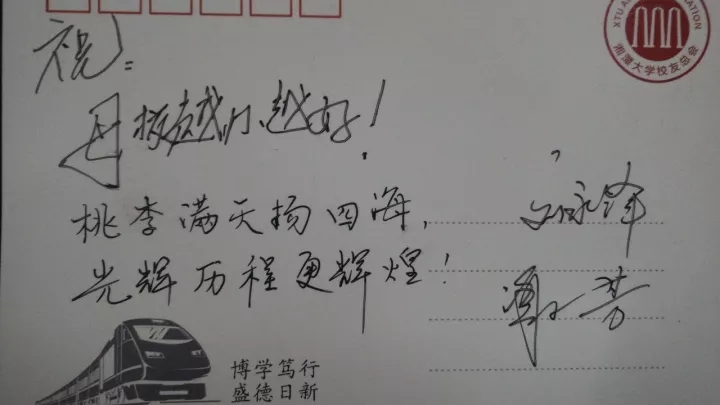 祝:
母校越办越好!
桃李满天扬四海,
光辉历程更辉煌!
芳
博学笃行
盛德日新
XTU A
ATION
湘潭大学校友总会